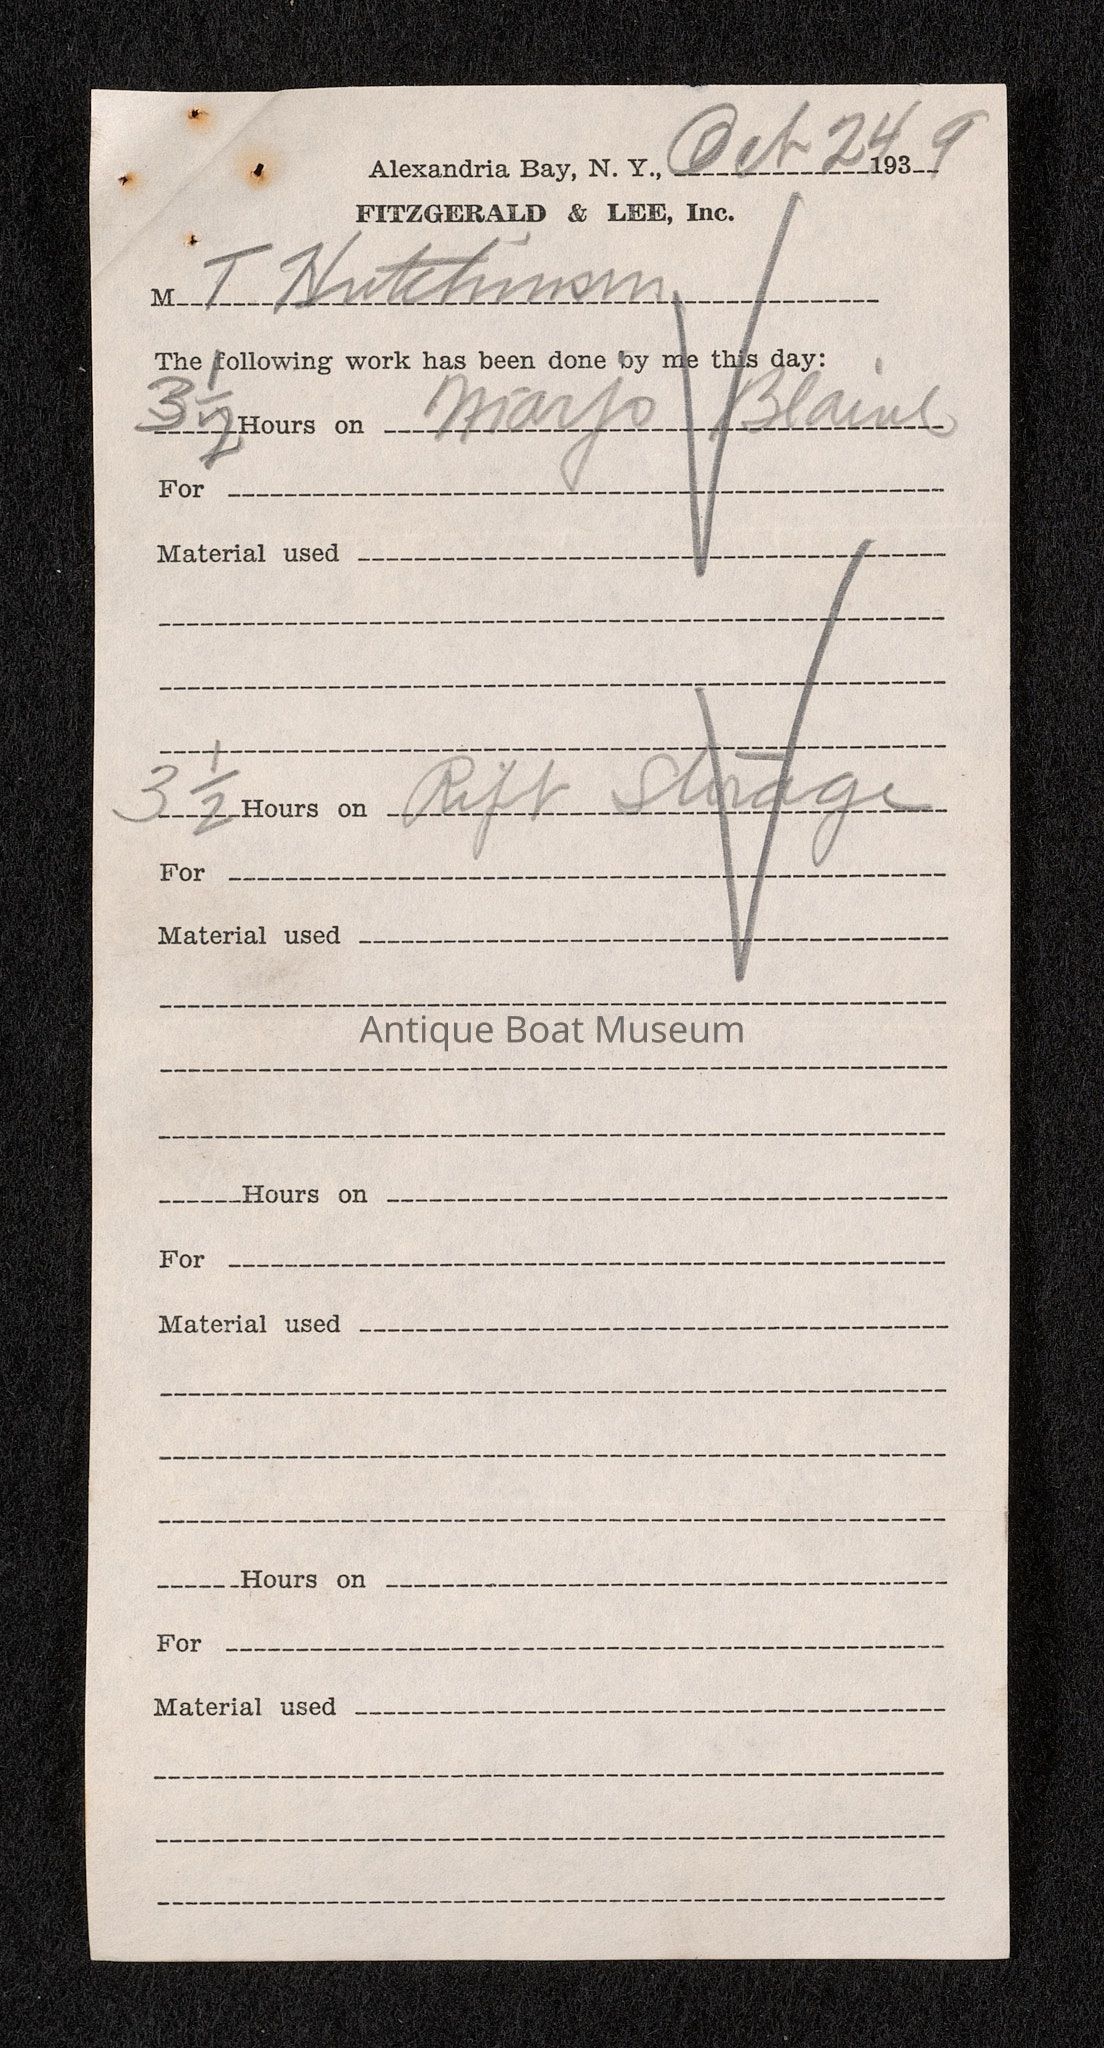 Alexandria Bay, N. Y., Oct 24 1939
FITZGERALD & LEE, Inc.
M T Hutchinson
The following work has been done by me this day:
3 1/2 Hours on Marjo Blaine
For
Material used
3 1/2 Hours on Rift Storage
For
Material used
Antique Boat Museum
Hours on
For
Material used
Hours on
For
Material used